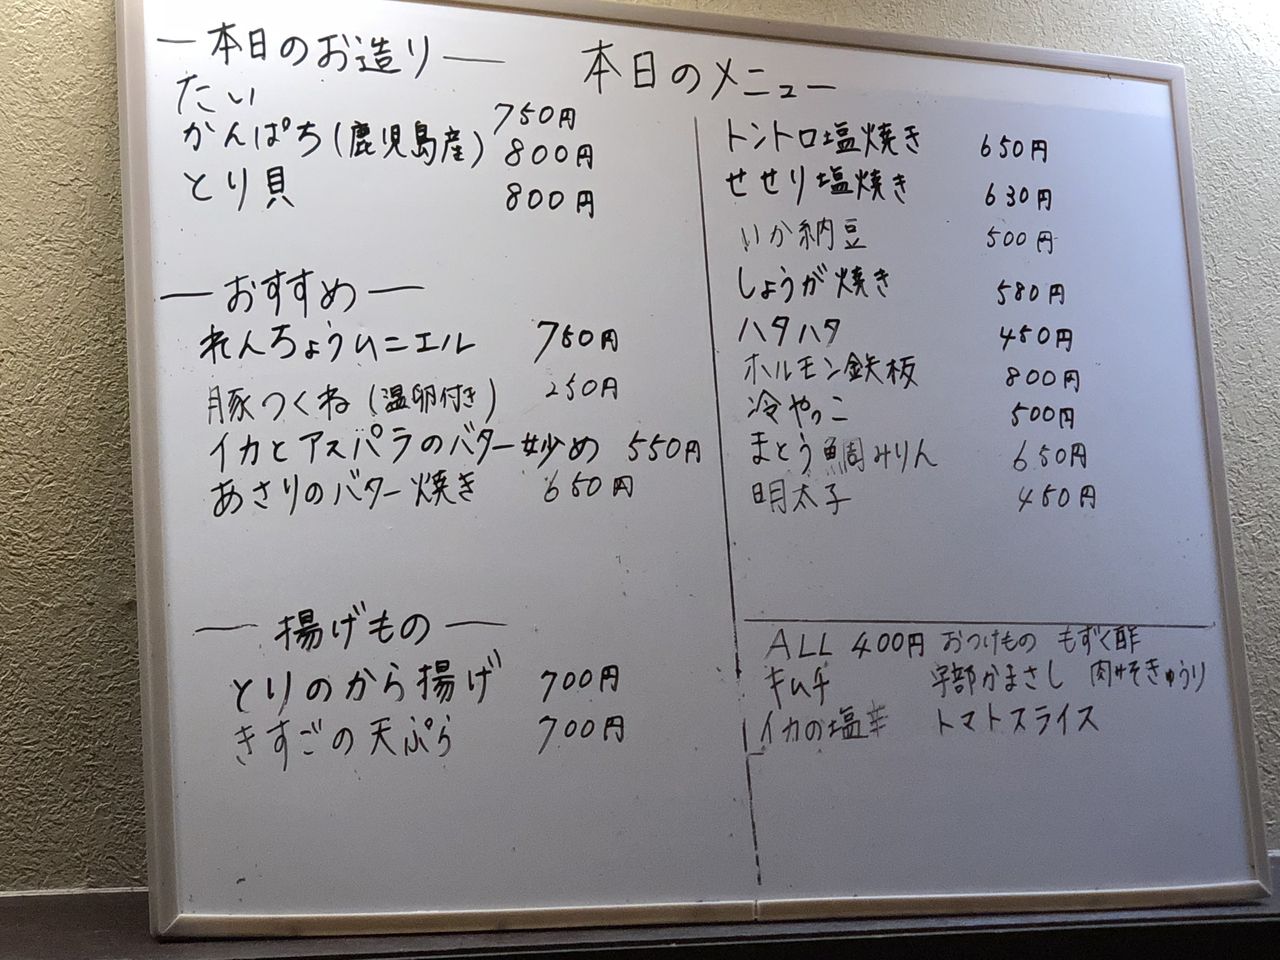 本日のメニュー
ー本日のお造りー
たい 750円
かんぱち(鹿児島産) 800円
とり貝 800円
ーおすすめー
れんちょうムニエル 750円
豚つくね(温卵付き) 250円
イカとアスパラのバター炒め 550円
あさりのバター焼き 650円
ー揚げものー
とりのから揚げ 700円
きすごの天ぷら 700円
トントロ塩焼き 650円
せせり塩焼き 630円
いか納豆 500円
しょうが焼き 580円
ハタハタ 450円
ホルモン鉄板 800円
冷やっこ 500円
まとう鯛みりん 650円
明太子 450円
ALL 400円 おつけもの もずく酢
キムチ 宇部かまさし 肉みそきゅうり
イカの塩辛 トマトスライス